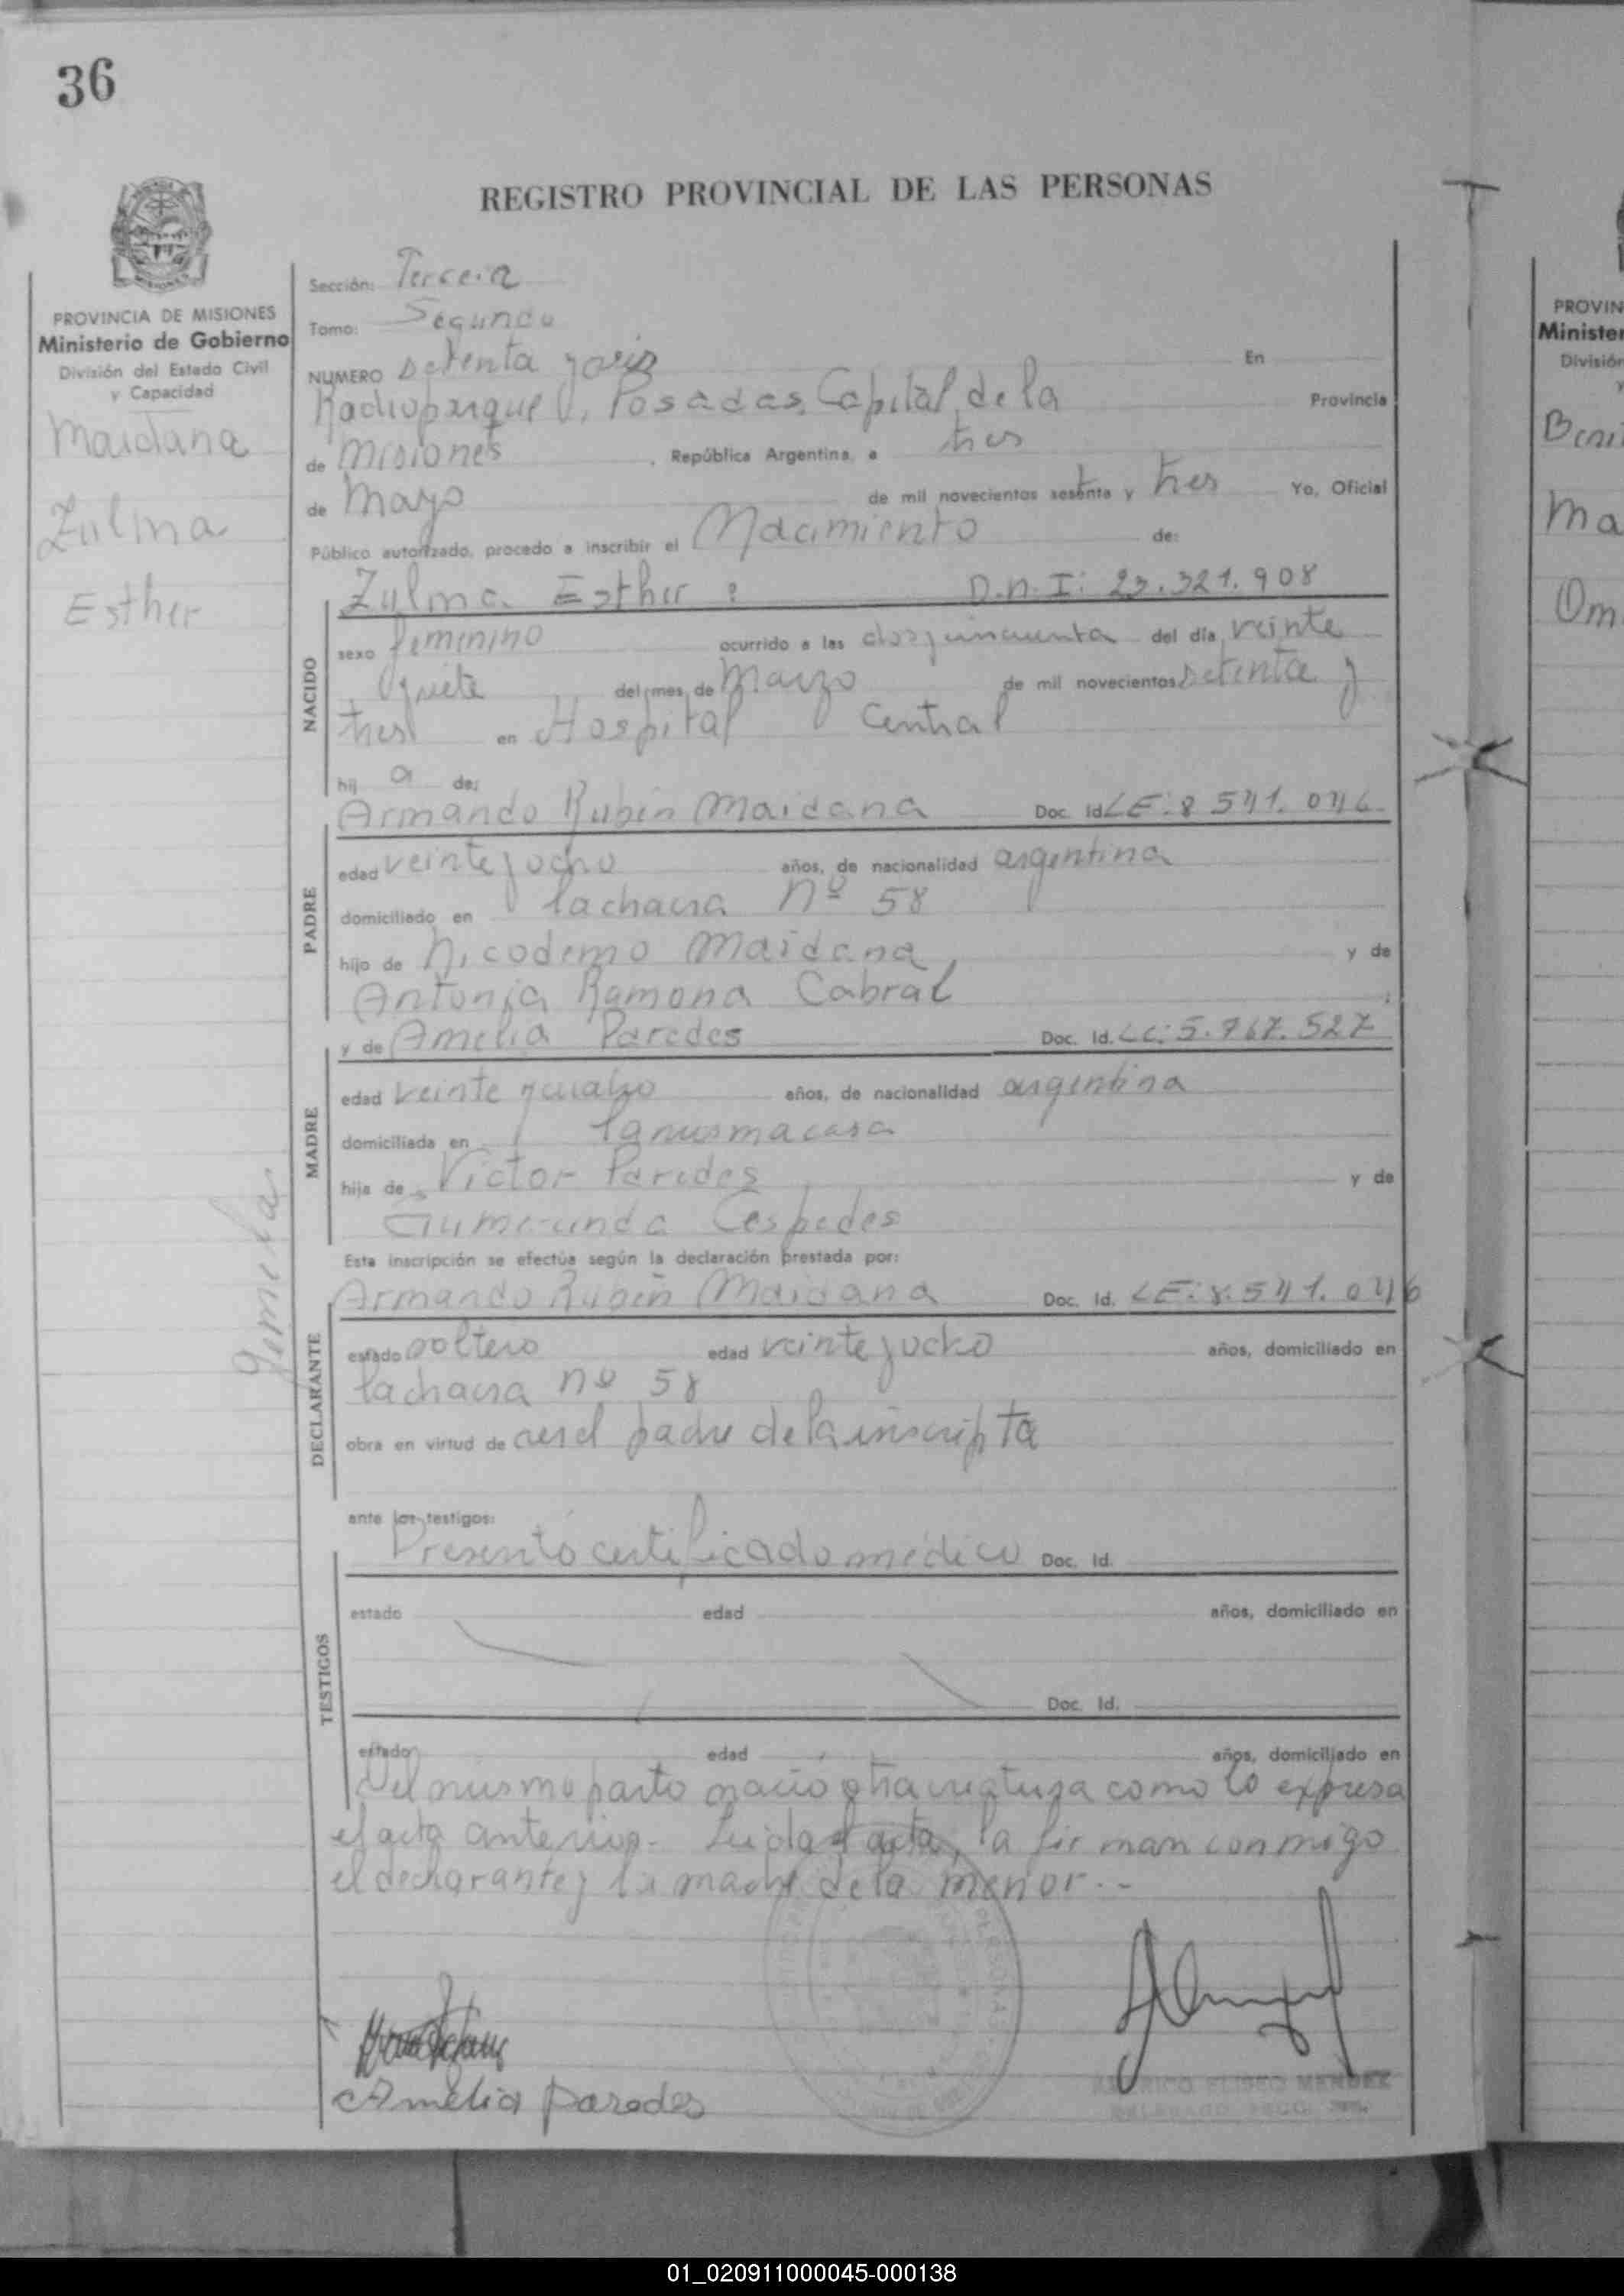 36
REGISTRO PROVINCIAL DE LAS PERSONAS
PROVINCIA DE MISIONES
Ministerio de Gobierno
División del Estado Civil
y Capacidad
Maidana
Zulma
Esther
Gemela
Sección: Tercera
Tomo: Segundo
NUMERO Setenta y seis En
Radioparque V. Posadas, Capital de la Provincia
de Misiones, República Argentina, a tres
de Mayo de mil novecientos setenta y tres Yo, Oficial
Público autorizado, procedo a inscribir el Nacimiento de:
Zulma Esther : D.N.I: 23.321.908
NACIDO
sexo femenino ocurrido a las dos y cincuenta del día veinte
y siete del mes de Marzo de mil novecientos setenta y
tres en Hospital Central
hij a de:
Armando Rubén Maidana Doc. Id. LE: 8.541.046
PADRE
edad veinte y ocho años, de nacionalidad argentina
domiciliado en la chacra Nº 58
hijo de Nicodemo Maidana y de
Antonia Ramona Cabral
y de Amelia Paredes Doc. Id. LC: 5.767.527
MADRE
edad veinte y cuatro años, de nacionalidad argentina
domiciliada en la misma casa
hija de Victor Paredes y de
Gumercinda Cespedes
Esta inscripción se efectúa según la declaración prestada por:
Armando Rubén Maidana Doc. Id. LE: 8.541.046
DECLARANTE
estado soltero edad veinte y ocho años, domiciliado en
la chacra nº 58
obra en virtud de ser el padre de la inscripta
ante los testigos:
Presentó certificado médico Doc. Id.
TESTIGOS
estado edad años, domiciliado en
Doc. Id.
estado edad años, domiciliado en
Del mismo parto nació otra criatura como lo expresa
el acta anterior.- Leida el acta, la firman conmigo
el declarante y la madre de la menor.-
Amelia Paredes
AMERICO ELISEO MENDEZ
PROVIN
Minister
División
y
Ma
Om
01_020911000045-000138